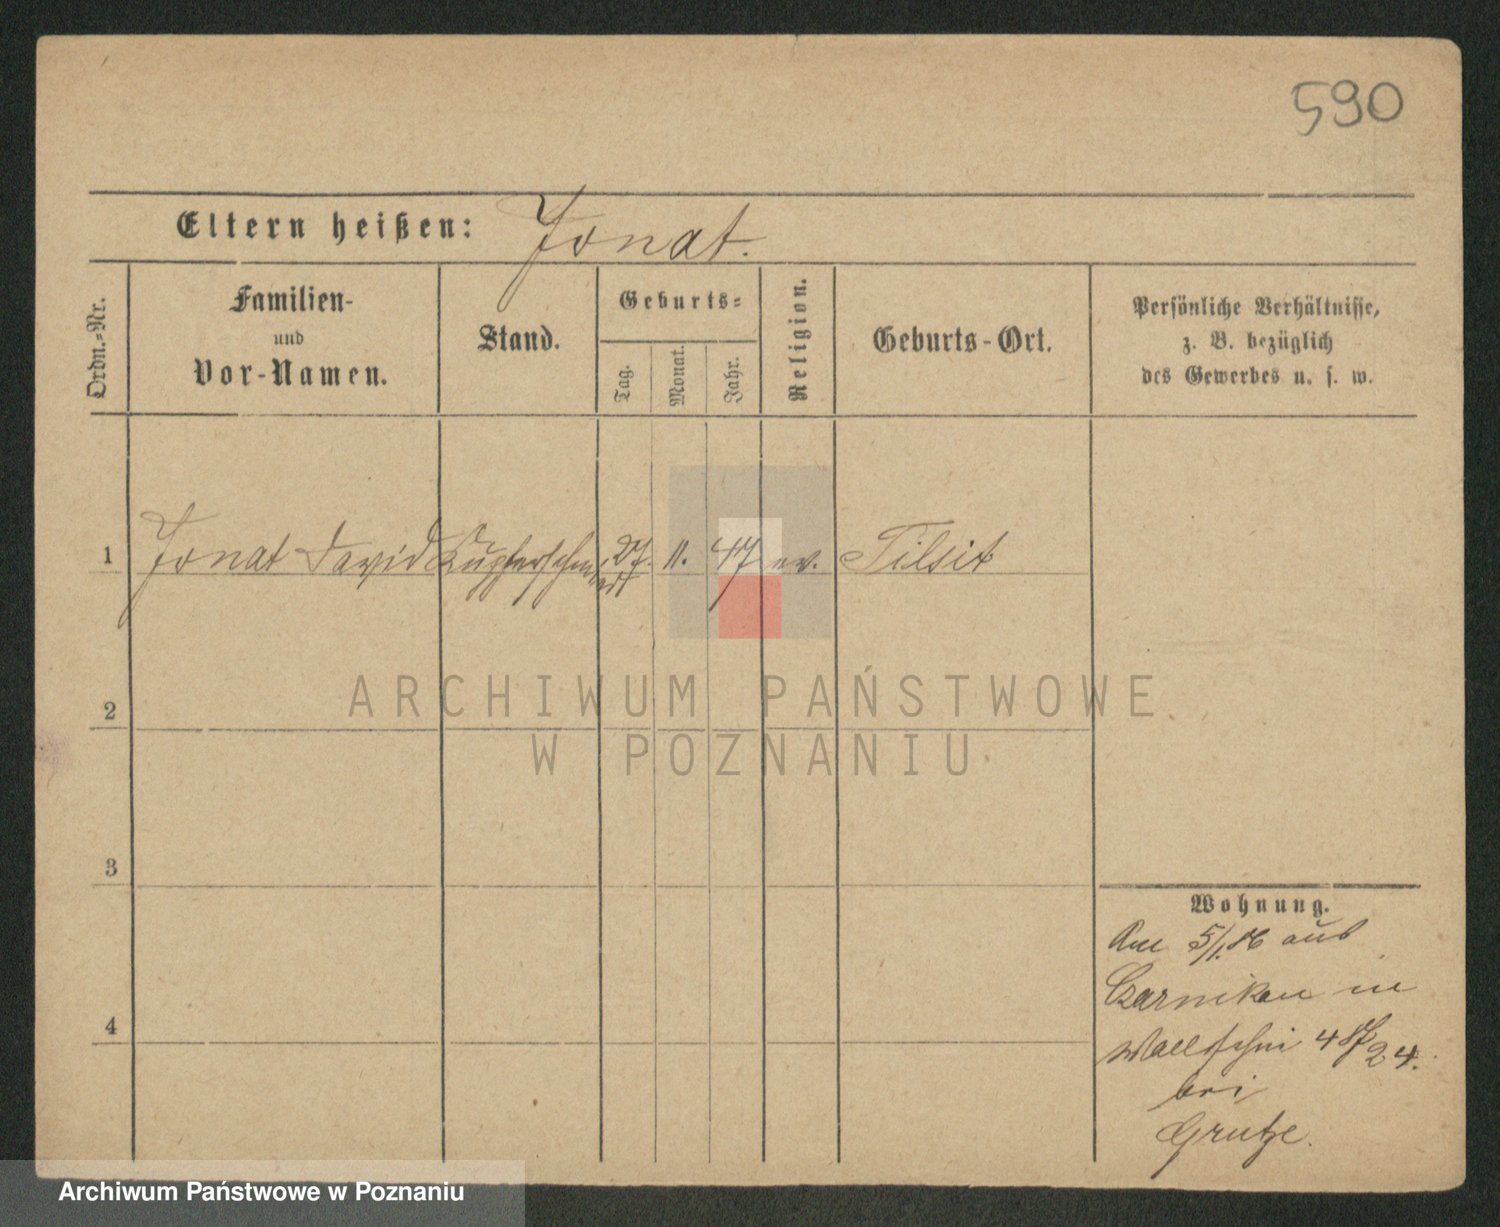 590
Eltern heißen: Jonat.
Ordn.-Nr.
Familien-
und
Vor-Namen.
Stand.
Geburts-
Tag.
Monat.
Jahr.
Religion.
Geburts-Ort.
Persönliche Verhältnisse,
z. B. bezüglich
des Gewerbes u. s. w.
1 Jonat David Kupferschmidt 27. 11. 47 ev. Tilsit
2
3
4
Wohnung.
Am 5/1. 86 aus
Czarnikau in
4
24.
bei
Grutze.
ARCHIWUM PAŃSTWOWE
W POZNANIU
Archiwum Państwowe w Poznaniu